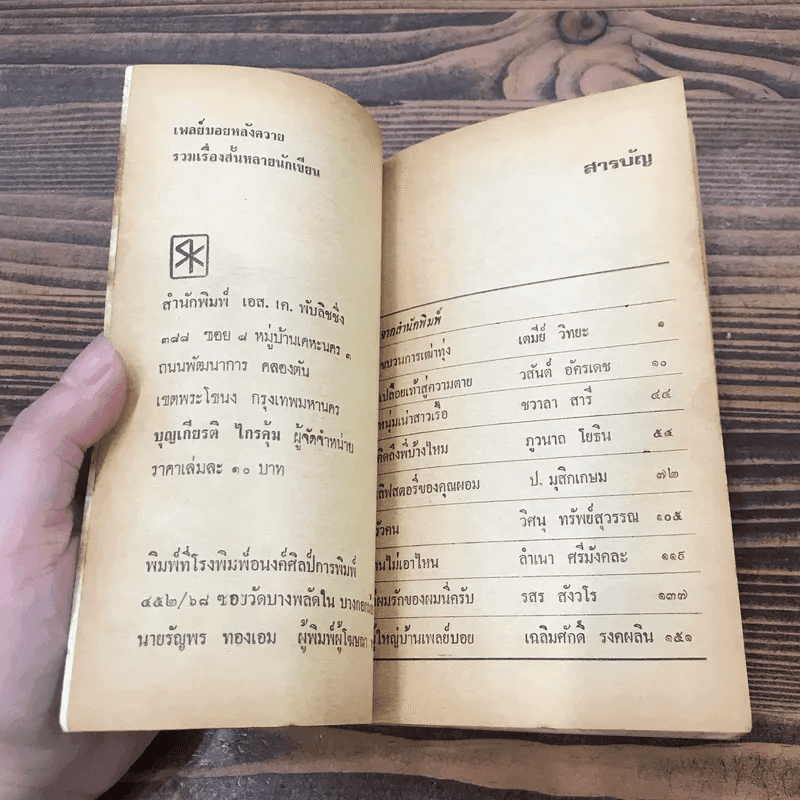 เพลย์บอยหลังควาย
รวมเรื่องสั้นหลายนักเขียน
SK
สำนักพิมพ์ เอส. เค. พับลิชชิ่ง
๓๘๘ ซอย ๘ หมู่บ้านเคหะนคร ๓
ถนนพัฒนาการ คลองตัน
เขตพระโขนง กรุงเทพมหานคร
บุญเกียรติ ไกรคุ้ม ผู้จัดจำหน่าย
ราคาเล่มละ ๑๐ บาท
พิมพ์ที่โรงพิมพ์อนงค์ศิลป์การพิมพ์
๔๕๒/๖๘ ซอยวัดบางพลัดใน
นายรัญพร ทองเอม ผู้พิมพ์ผู้โฆษณา
สารบัญ
จากสำนักพิมพ์
ขบวนการเฒ่าทุ่ง เตมีย์ วิทยะ ๑
เปลือยเท้าสู่ความตาย วสันต์ อัครเดช ๑๐
หนุ่มเน่าสาวเรื้อ ชวาลา สารี ๔๔
คิดถึงพี่บ้างไหม ภูวนาถ โยธิน ๕๔
ลิฟสตอรี่ของคุณผอม ป. มุสิกเกษม ๗๒
วิศนุ ทรัพย์สุวรรณ ๑๐๕
นไม่เอาไหน ลำเนา ศรีมังคละ ๑๑๙
ผมรักของผมนี่ครับ รสร สังวโร ๑๓๗
ใหญ่บ้านเพลย์บอย เฉลิมศักดิ์ รงคผลิน ๑๕๑